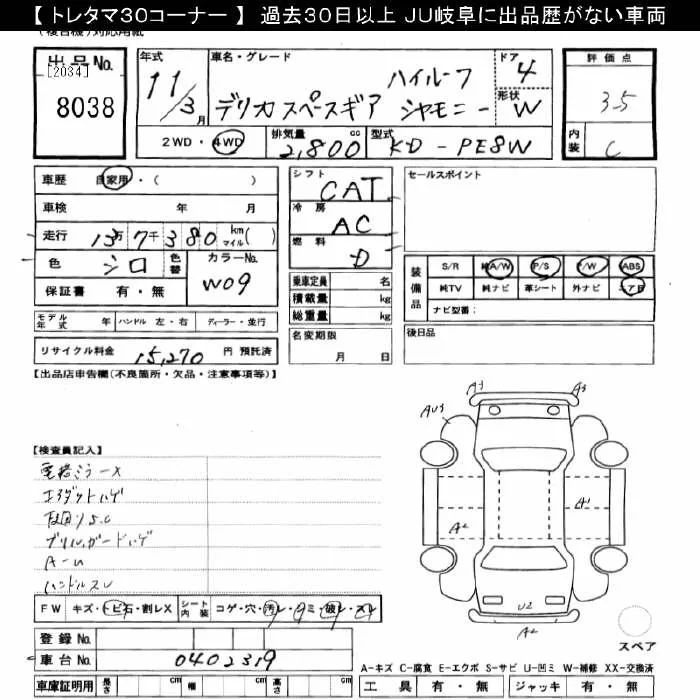 【トレタマ30コーナー】 過去30日以上 JU岐阜に出品歴がない車両
出品No.
[2034]
8038
年式
11/3月
車名・グレード
ハイルーフ
デリカスペースギア シャモニー
ドア
4
形状
W
評価点
3.5
内装
C
2WD・4WD
排気量
2,800
cc
型式
KD-PE8W
車歴
自家用・( )
車検 年 月
走行 13万7千380 km マイル( )
色 シロ 色替
カラーNo.
W09
保証書 有・無
シフト
CAT
冷房
AC
燃料
D
乗車定員 名
積載量 kg
総重量 kg
名変期限
月 日
セールスポイント
装備品
S/R 純A/W P/S P/W ABS
純TV 純ナビ 革シート 外ナビ エアB
ナビ型番:
モデル年式 年 ハンドル 左・右 ディーラー・並行
後日品
リサイクル料金 15,270 円 預託済
【出品店申告欄(不良箇所・欠品・注意事項等)】
【検査員記入】
A-U
FW キズ・トビ石・割レX
シート内装 コゲ・穴・汚レ・シミ・破レ・スレ
登録No.
車台No. 0402319
車庫証明用 長さ cm 幅 cm 高さ cm
A3
A3
AU3
A1
A2
U2
A2
スペア
A-キズ C-腐食 E-エクボ S-サビ U-凹ミ W-補修 XX-交換済
工具 有・無 ジャッキ 有・無